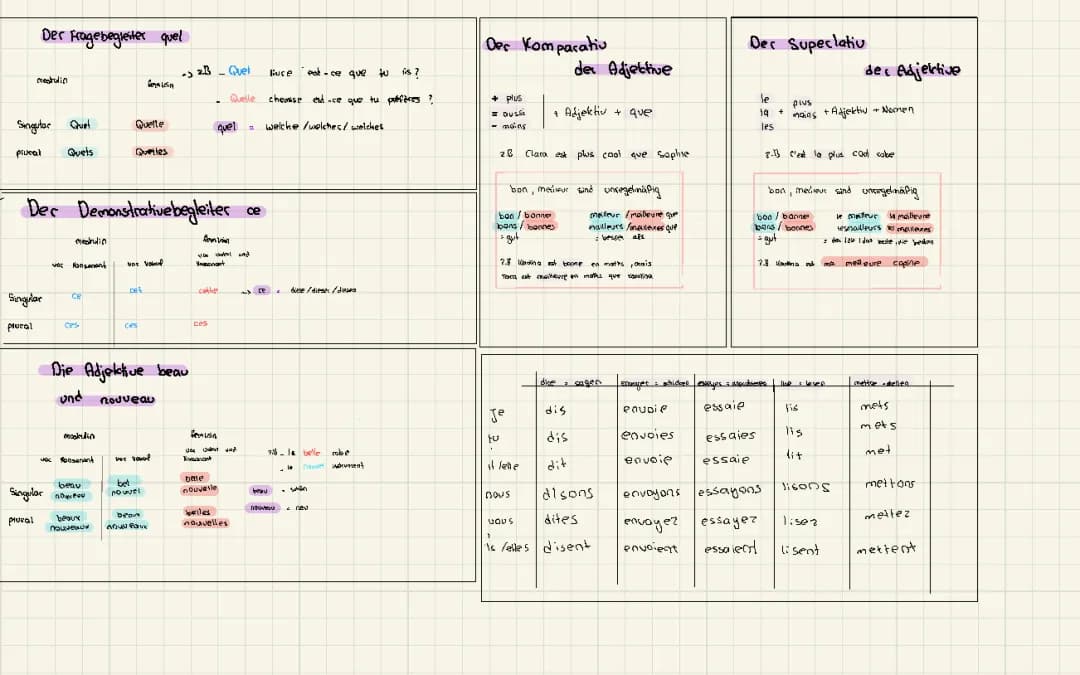 Der Fragebegleiter quel
maskulin
feminin
-> zB - Quel livre est-ce que tu lis?
- Quelle chemise est-ce que tu préfères ?
Singular Quel Quelle
quel = welche /welches/ welches
plural Quels Quelles
Der Demonstrativebegleiter ce
maskulin
feminin
vor Konsonant
vor Vokal
vor Vokal und
Konsonant
Singular ce cet cette -> ce = diese /dieser/dieses
plural ces ces ces
Die Adjektive beau
und nouveau
maskulin
feminin
vor Konsonant
vor Vokal
vor Vokal und
Konsonant
zB - la belle robe
- le nouvel
Singular
beau
nouveau
bel
nouvel
belle
nouvelle
beau = schön
nouveau = neu
plural
beaux
nouveaux
beaux
nouveaux
belles
nouvelles
Der Komparativ
der Adjektive
+ plus
= aussi
- moins
+ Adjektiv + que
zB Clara est plus cool que Sophie
bon, meilleur sind unregelmäßig
bon / bonne
bons / bonnes
= gut
meilleur /meilleure que
meilleurs /meilleures que
= besser als
z.B Karina est bonne en maths, mais
est meilleure en maths que Karina
Der Superlativ
der Adjektive
le
la
les
+
plus
moins
+ Adjektiv + Nomen
z.B C'est la plus cool robe
bon, meilleur sind unregelmäßig
bon / bonne
bons / bonnes
= gut
le meilleur la meilleure
les meilleurs les meilleures
= der /die /das beste /die besten
z.B Karina est ma meilleure copine
dire = sagen envoyer = schicken essayer = lire = lesen mettre = stellen
Je dis envoie essaie lis mets
tu dis envoies essaies lis mets
il/elle dit envoie essaie lit met
nous disons envoyons essayons lisons mettons
vous dites envoyez essayez lisez mettez
ils /elles disent envoient essaient lisent mettent